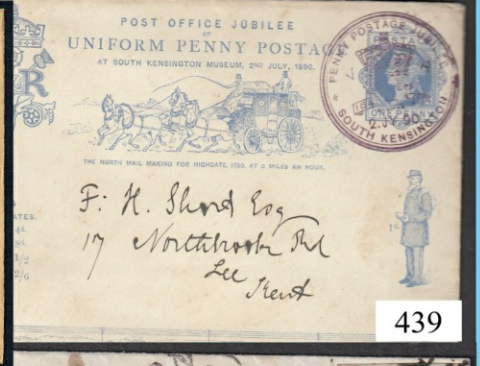 POST OFFICE JUBILEE
OF
UNIFORM PENNY POSTAGE
AT SOUTH KENSINGTON MUSEUM, 2ND JULY, 1890.
PENNY POSTAGE JUBILEE
SOUTH KENSINGTON
R
THE NORTH MAIL MAKING FOR HIGHGATE, 1790, AT 8 MILES AN HOUR.
F. H. Short Esq
17 Northbrook Rd
Lee
Kent
439